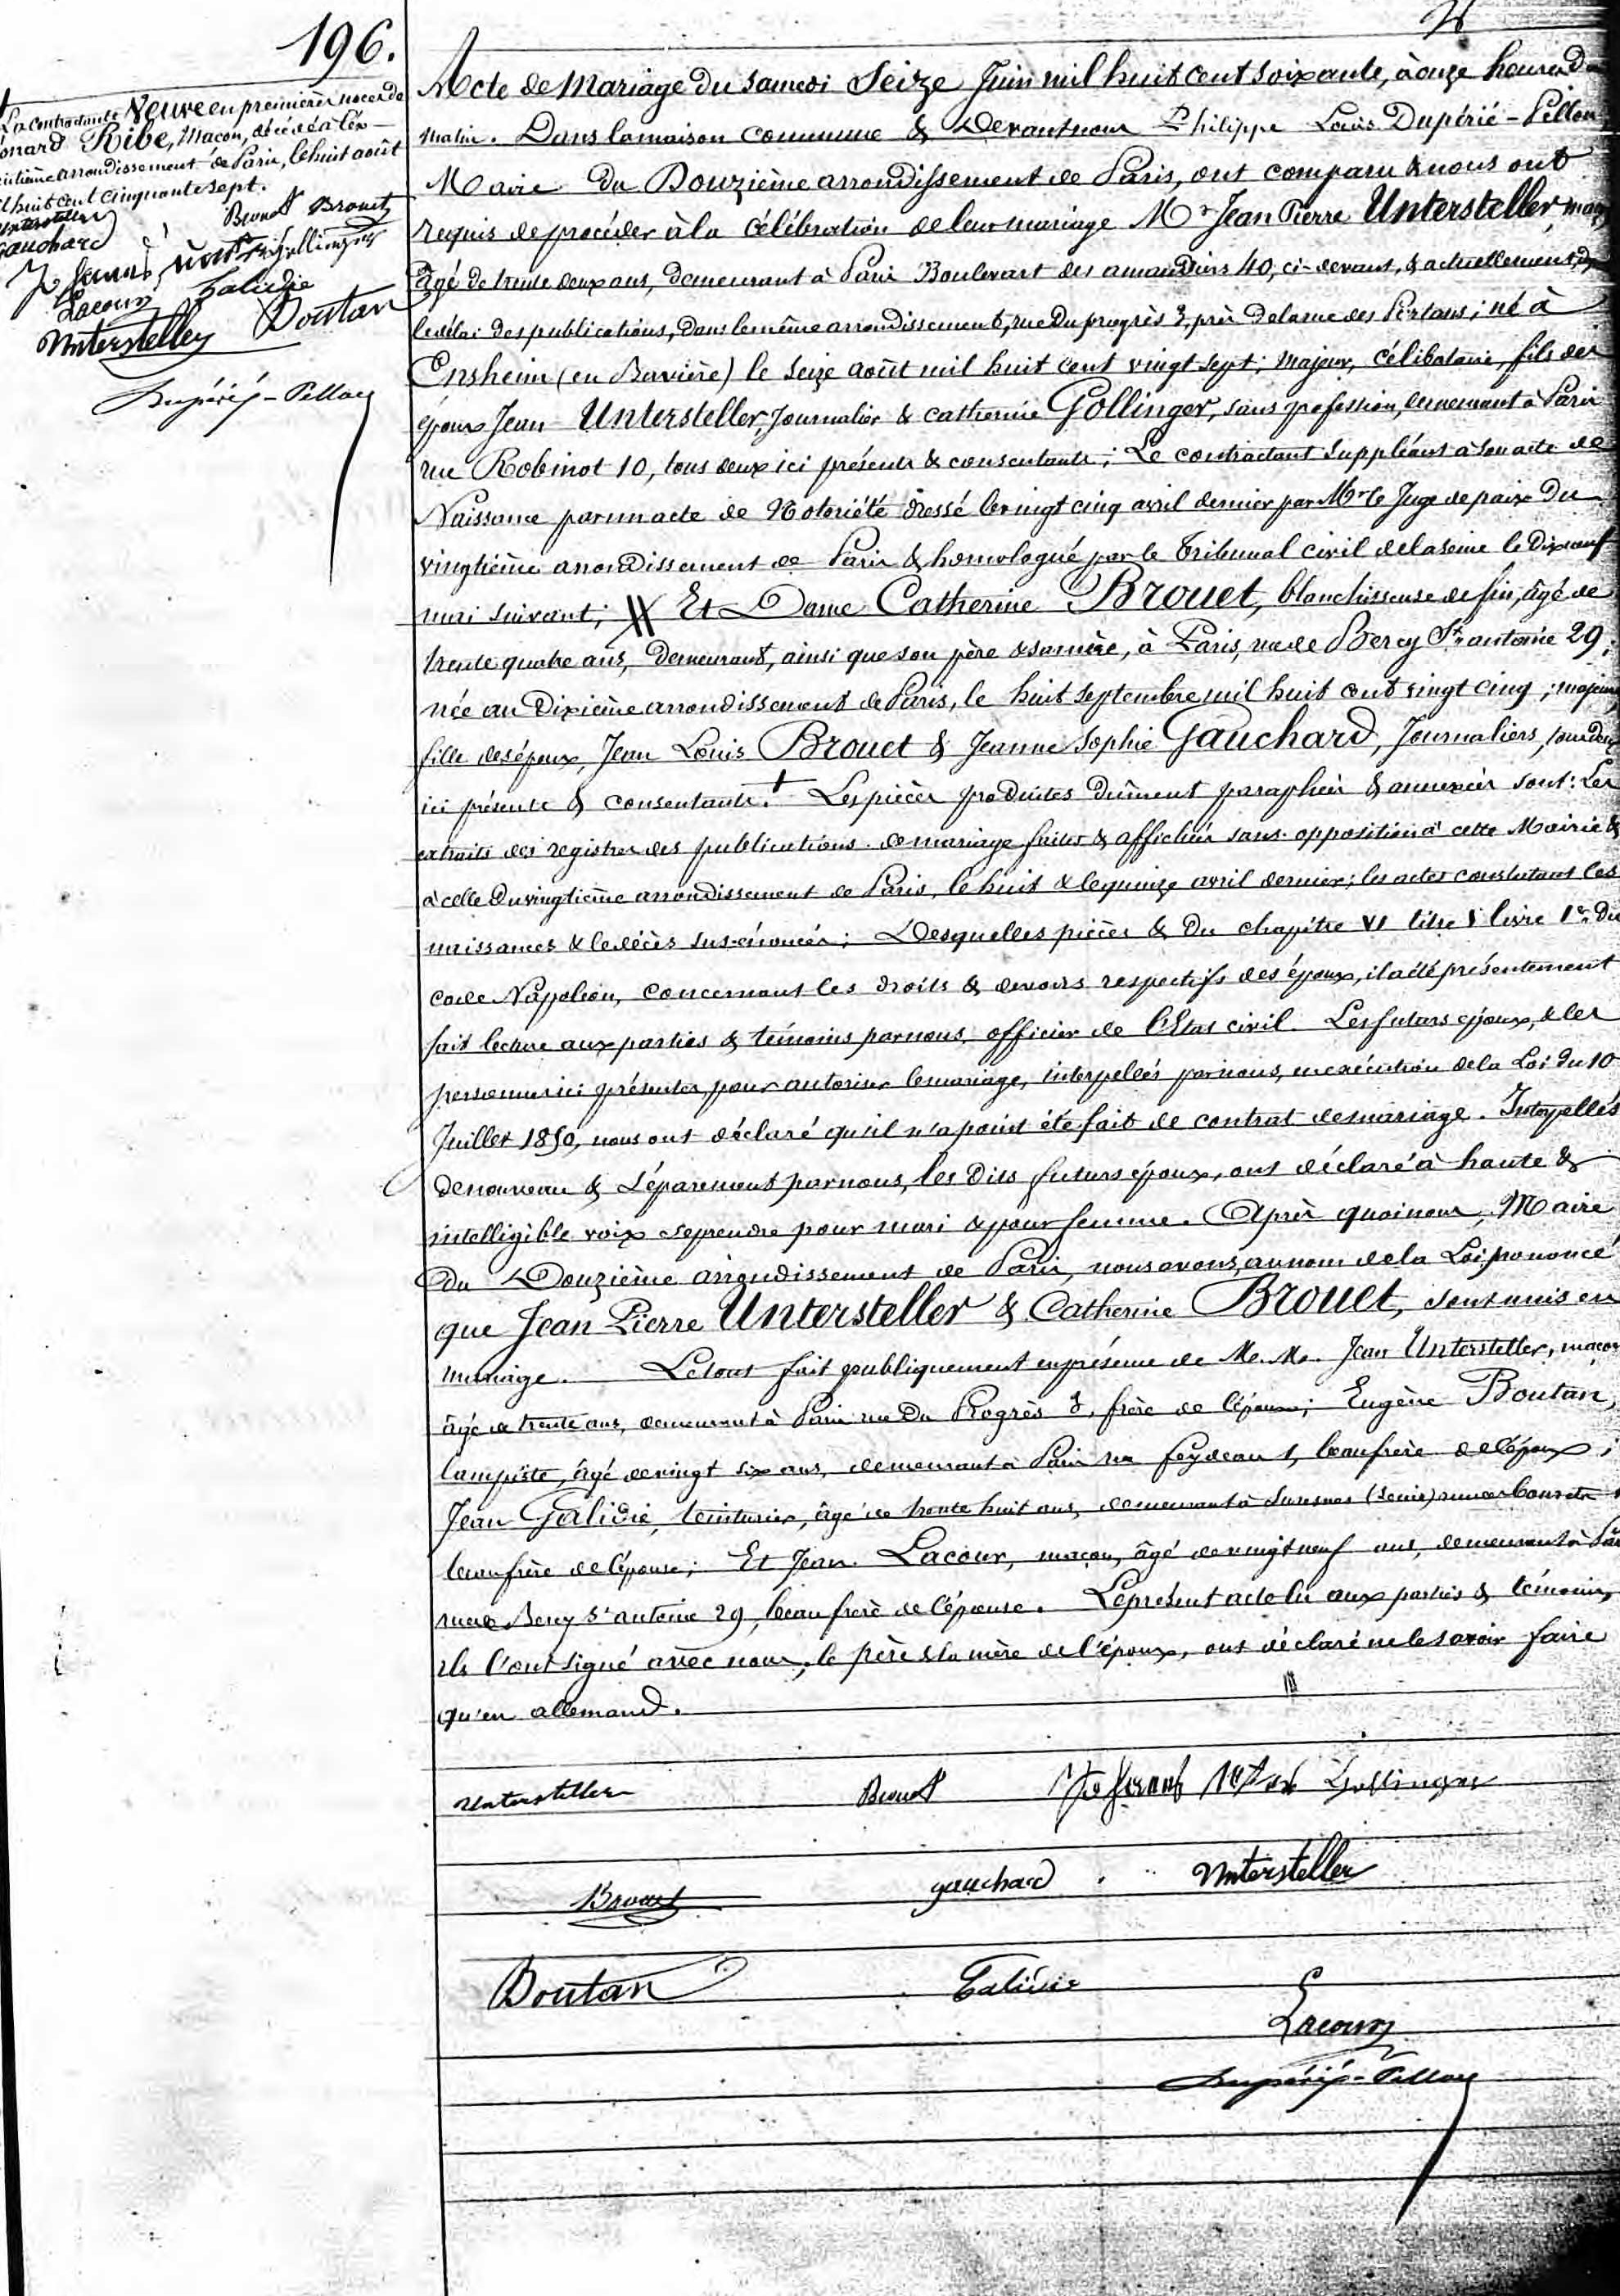 196.
La contractante Veuve en premières noces de
Léonard Ribe, Maçon, décédé à l'ex-
huitième arrondissement de Paris, le huit août
mil huit cent cinquante sept.
Untersteller Brouet Brouet
gauchard
Lacour Galidie
Untersteller Boutan
Dupérié-Pellou
Acte de Mariage du samedi Seize Juin mil huit cent soixante, à onze heures du
matin. Dans la maison commune & Devant nous Philippe Louis Dupérié-Pellou
Maire du Douzième arrondissement de Paris, ont comparu & nous ont
requis de procéder à la célébration de leur mariage Mr Jean Pierre Untersteller, maçon
âgé de trente deux ans, demeurant à Paris Boulevart des amandiers 40, ci-devant, & actuellement, depuis
le délai des publications, dans le même arrondissement, rue du progrès 3, près de la rue des Partans; né à
Ensheim (en Bavière) le seize août mil huit cent vingt sept; majeur, célibataire, fils des
époux Jean Untersteller, Journalier & catherine Gollinger, sans profession, demeurant à Paris
rue Robinot 10, tous deux ici présents & consentants; Le contractant suppléant à son acte de
Naissance par un acte de Notoriété dressé le vingt cinq avril dernier par Mr le Juge de paix du
vingtième arrondissement de Paris & homologué par le Tribunal civil de la seine le dix neuf
mai suivant; Et Dame Catherine Brouet, blanchisseuse de fin, âgé de
trente quatre ans, demeurant, ainsi que son père & sa mère, à Paris, rue de Bercy St antoine 29,
née au Dixième arrondissement de Paris, le huit septembre mil huit cent vingt cinq; majeure
fille des époux, Jean Louis Brouet & Jeanne Sophie Gauchard, Journaliers, tous deux
ici présents & consentants. + Les pièces produites dûment paraphées & annexées sont: Les
extraits des registres des publications de mariage faites & affichées sans opposition à cette Mairie &
à celle du vingtième arrondissement de Paris, le huit & le quinze avril dernier; les actes constatant les
naissances & le décès sus-énoncés; Desquelles pièces & du chapitre VI titre V livre 1er du
code Napoléon, concernant les droits & devoirs respectifs des époux, il a été présentement
fait lecture aux parties & témoins par nous, officier de l'Etat civil. Les futurs époux, & les
personnes ici présentes, pour autoriser le mariage, interpellés par nous, en exécution de la Loi du 10
Juillet 1850, nous ont déclaré qu'il n'a point été fait de contrat de mariage. Interpellés
de nouveau & séparément par nous, les dits futurs époux, ont déclaré à haute &
intelligible voix se prendre pour mari & pour femme. Après quoi nous, Maire
du Douzième arrondissement de Paris, nous avons, au nom de la Loi prononcé
que Jean Pierre Untersteller & Catherine Brouet, sont unis en
mariage. Le tout fait publiquement en présence de M. M. Jean Untersteller, maçon
âgé de trente ans, demeurant à Paris rue du Progrès 3, frère de l'époux; Eugène Boutan,
lampiste, âgé de vingt six ans, demeurant à Paris rue feydeau 1, beau frère de l'époux;
Jean Galidie, teinturier, âgé de trente huit ans, demeurant à Suresnes (Seine)
beau frère de l'épouse; Et Jean Lacour, maçon, âgé de vingt neuf ans, demeurant à Paris
rue de Bercy St antoine 29, beau frère de l'épouse. Le présent acte lu aux parties & témoins,
ils l'ont signé avec nous, le père & la mère de l'époux, ont déclaré ne le savoir faire
qu'en allemand.
Untersteller Brouet Gollinger
Brouet gauchard Untersteller
Boutan Galidie
Lacour
Dupérié-Pellou